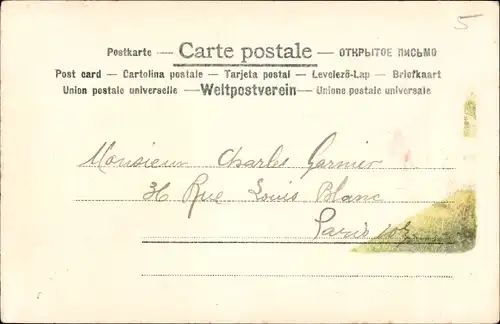 5
Postkarte — Carte postale — ОТКРЫТОЕ ПИСЬМО
Post card — Cartolina postale — Tarjeta postal — Levelező-Lap — Briefkaart
Union postale universelle — Weltpostverein — Unione postale universale
Monsieur Charles Garnier
36 Rue Louis Blanc
Paris 10e